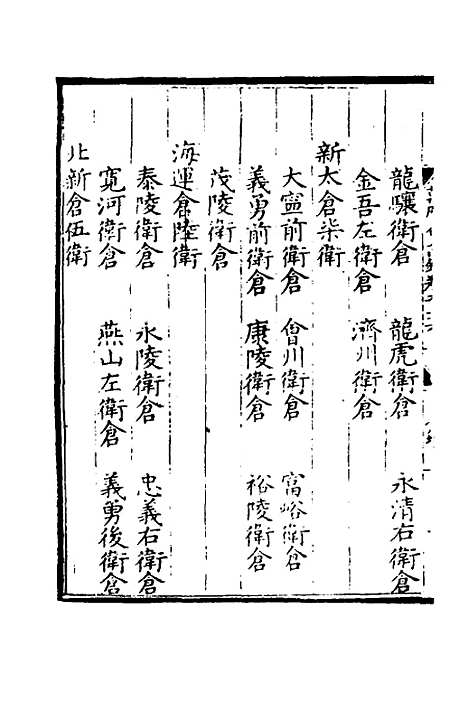 龍驤衛倉　龍虎衛倉　永清右衛倉
金吾左衛倉　濟川衛倉
新太倉柒衛
大寧前衛倉　會川衛倉　富峪衛倉
義勇前衛倉　康陵衛倉　裕陵衛倉
茂陵衛倉
海運倉陸衛
泰陵衛倉　永陵衛倉　忠義右衛倉
寬河衛倉　燕山左衛倉　義勇後衛倉
北新倉伍衛